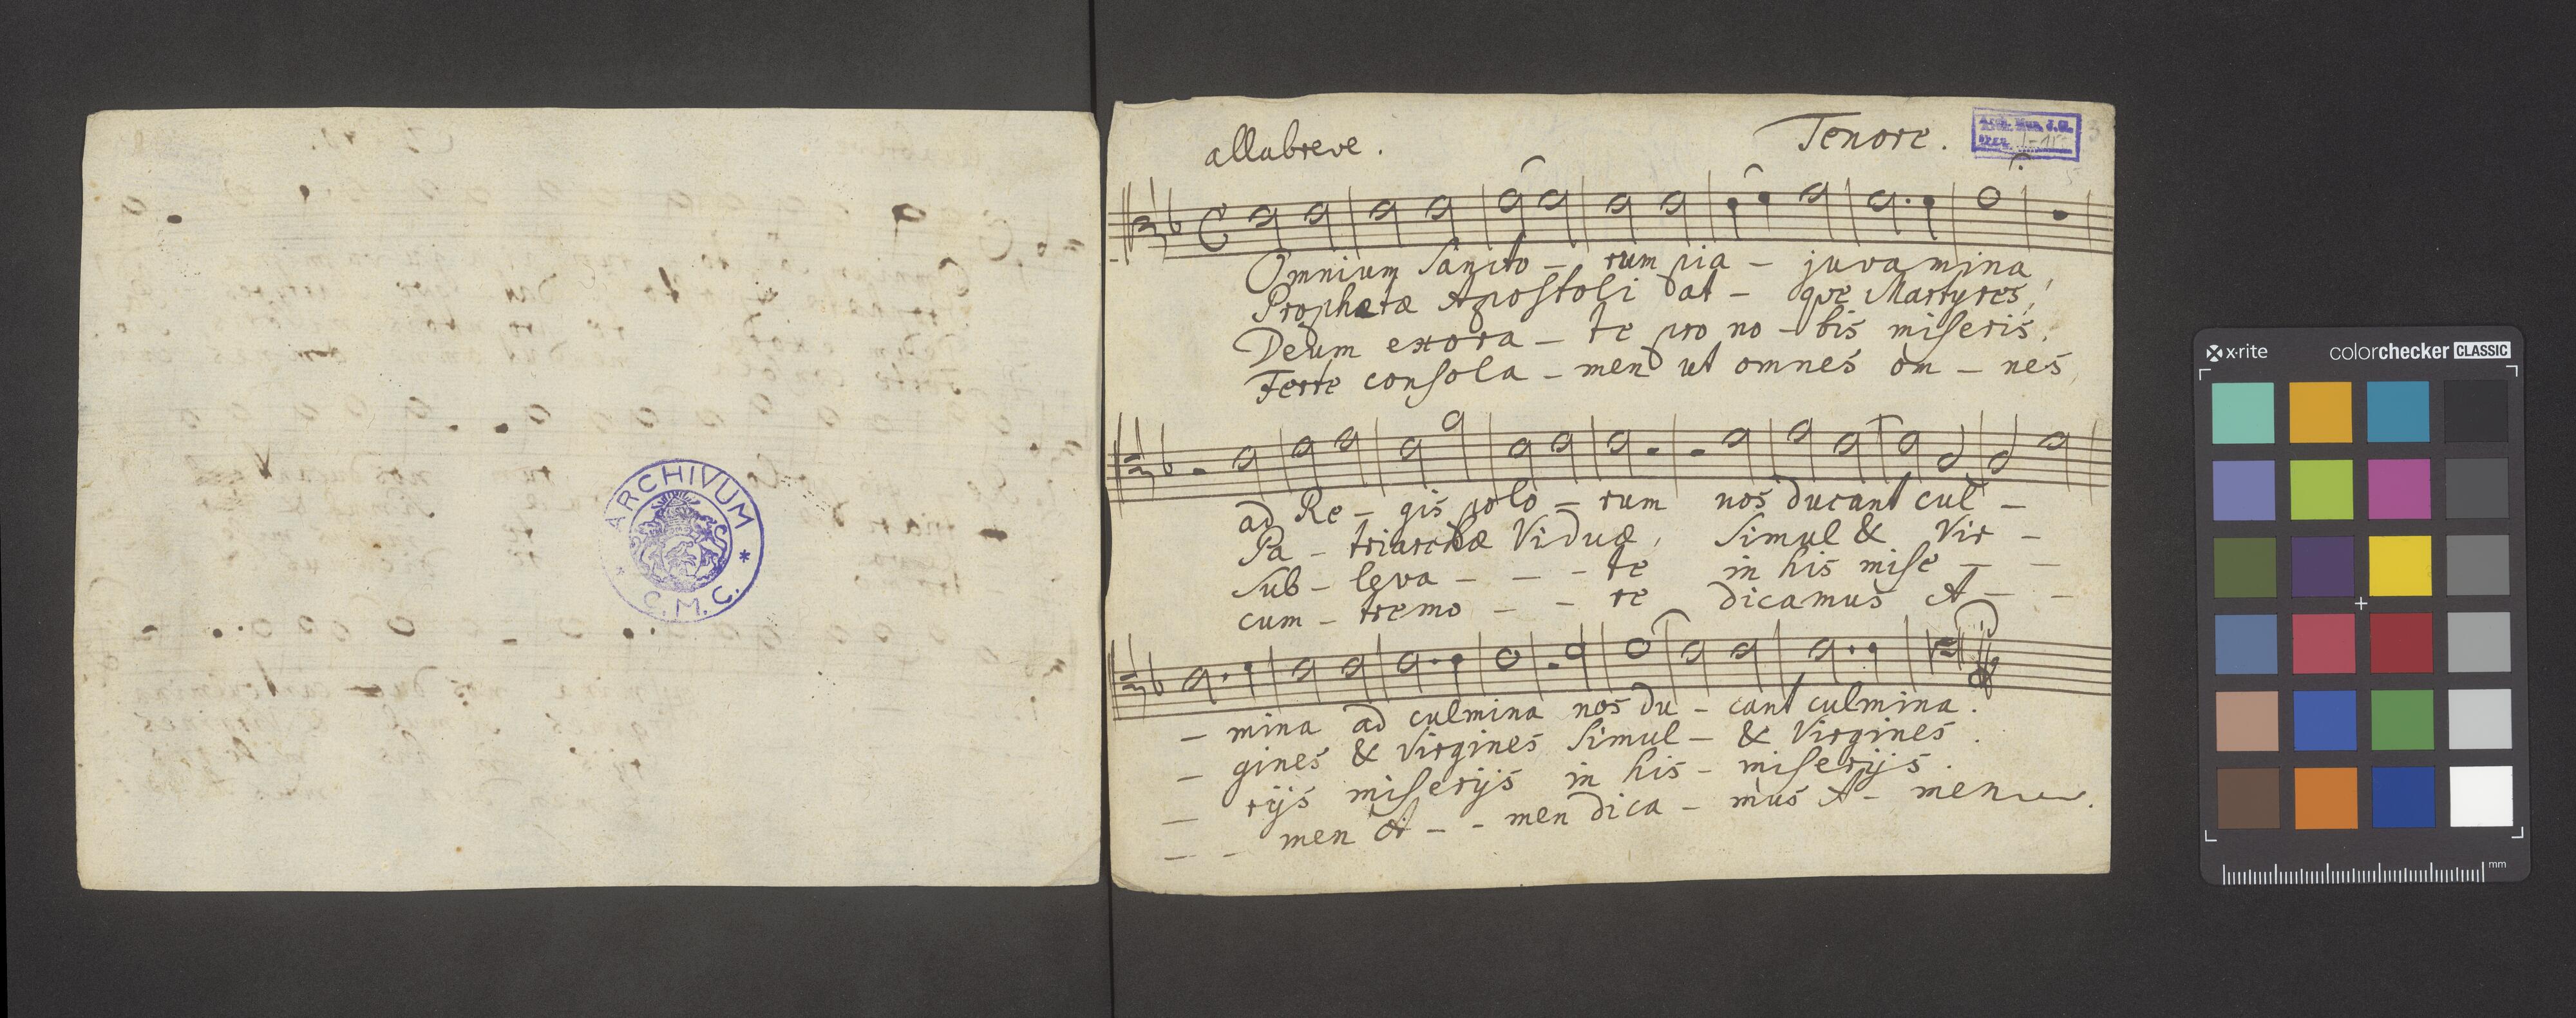 ARCHIVUM
* C. M. C. *
allabreve.
Tenore.
Omnium Sancto - rum pia - juvamina
Prophetæ Apostoli at - que Martyres,
Deum exora - te pro no - bis miseris.
Ferte consola - men ut omnes om - nes
ad Re - gis polo - rum nos ducant cul -
Pa - triarchæ Viduæ, simul & Vir -
Sub - leva - - - te in his mise - -
cum - tremo - - re dicamus A - -
- mina ad culmina nos du - cant culmina.
- gines & Virgines simul - & Virgines.
- rijs miserijs in his - miserijs.
- - men A - - men dica - mus A - men.
x·rite
colorchecker CLASSIC
mm